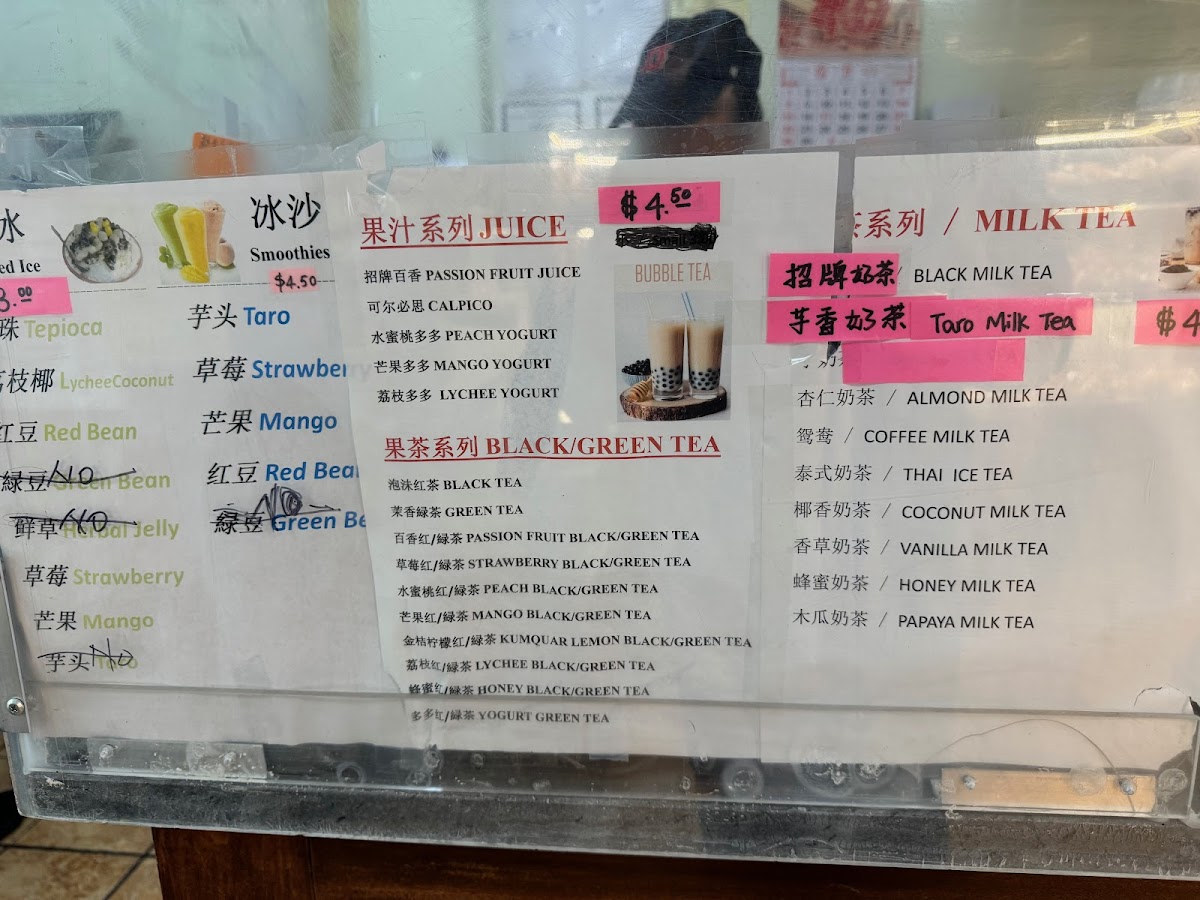 冰
冰沙
ed Ice
Smoothies
.00
$4.50
珠 Tepioca
荔枝椰 LycheeCoconut
红豆 Red Bean
緑豆 NO Green Bean
鲜草 NO Herbal Jelly
草莓 Strawberry
芒果 Mango
芋头 No
芋头 Taro
草莓 Strawber
芒果 Mango
红豆 Red Bea
緑豆 NO Green Be
果汁系列 JUICE
$4.50
招牌百香 PASSION FRUIT JUICE
可尔必思 CALPICO
水蜜桃多多 PEACH YOGURT
芒果多多 MANGO YOGURT
荔枝多多 LYCHEE YOGURT
BUBBLE TEA
果茶系列 BLACK/GREEN TEA
泡沫红茶 BLACK TEA
茉香緑茶 GREEN TEA
百香红/緑茶 PASSION FRUIT BLACK/GREEN TEA
草莓红/緑茶 STRAWBERRY BLACK/GREEN TEA
水蜜桃红/緑茶 PEACH BLACK/GREEN TEA
芒果红/緑茶 MANGO BLACK/GREEN TEA
金桔柠檬红/緑茶 KUMQUAR LEMON BLACK/GREEN TEA
荔枝红/緑茶 LYCHEE BLACK/GREEN TEA
蜂蜜红/緑茶 HONEY BLACK/GREEN TEA
多多红/緑茶 YOGURT GREEN TEA
茶系列 / MILK TEA
招牌奶茶 / BLACK MILK TEA
芋香奶茶 Taro Milk Tea
$4
杏仁奶茶 / ALMOND MILK TEA
鸳鸯 / COFFEE MILK TEA
泰式奶茶 / THAI ICE TEA
椰香奶茶 / COCONUT MILK TEA
香草奶茶 / VANILLA MILK TEA
蜂蜜奶茶 / HONEY MILK TEA
木瓜奶茶 / PAPAYA MILK TEA